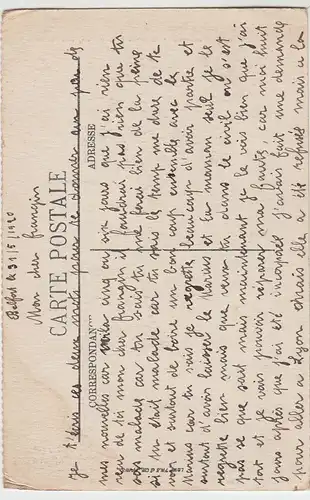 Belfort le 31/5/1920
Mon cher frangin
CARTE POSTALE
CORRESPONDANCE
ADRESSE
Je t'écris ces deux mots pour te donner un peu de
mes nouvelles car voila cinq ou six jours que j'ai rien
reçu de toi mon cher frangin il faudrait pas bien que tu
sois malade car tu sais tu me ferai bien de la peine
si tu était malade car tu sais le temp me dure de te
voir et surtout de boire un bon coup ensemble avec la
car tu vois je regrette beaucoup d'avoir partie et
surtout d'avoir laissez la et la maman seul je le
regrette bien mais que veux tu dans le civil on s'est
pas se que sait mais maintenant je le vois bien que j'ai
tort et je vais pouvoir réparer ma faute, car moi huit
jours après que j'ai été incorporé j'avais fait une demande
pour aller a Lyon mais elle a été refusée mais a la